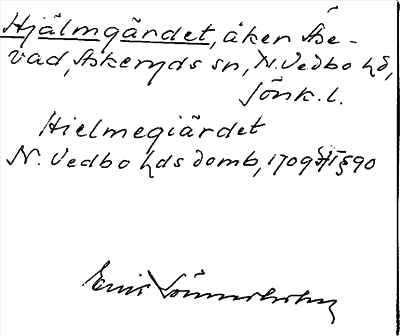 Hjälmgärdet, åker Åse-
vad, Askeryds sn, N. Vedbo hd,
Jönk. l.
Hielmegiärdet
N. Vedbo hds domb, 1709 § 90
Emil